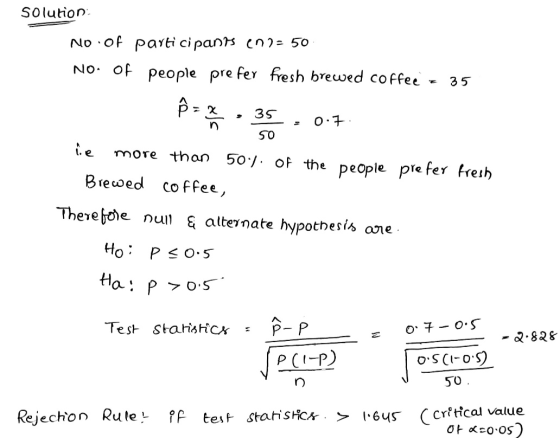 Solution:
No. of participants (n) = 50
No. of people prefer fresh brewed coffee = 35
p̂ = x/n = 35/50 = 0.7.
i.e more than 50% of the people prefer fresh
Brewed coffee,
Therefore null & alternate hypothesis are.
Ho: P ≤ 0.5
Ha: P > 0.5
Test statistics = (p̂ - P) / √(P(1-P)/n) = (0.7 - 0.5) / √(0.5(1-0.5)/50) = 2.828
Rejection Rule: if test statistics > 1.645 (critical value
at α=0.05)